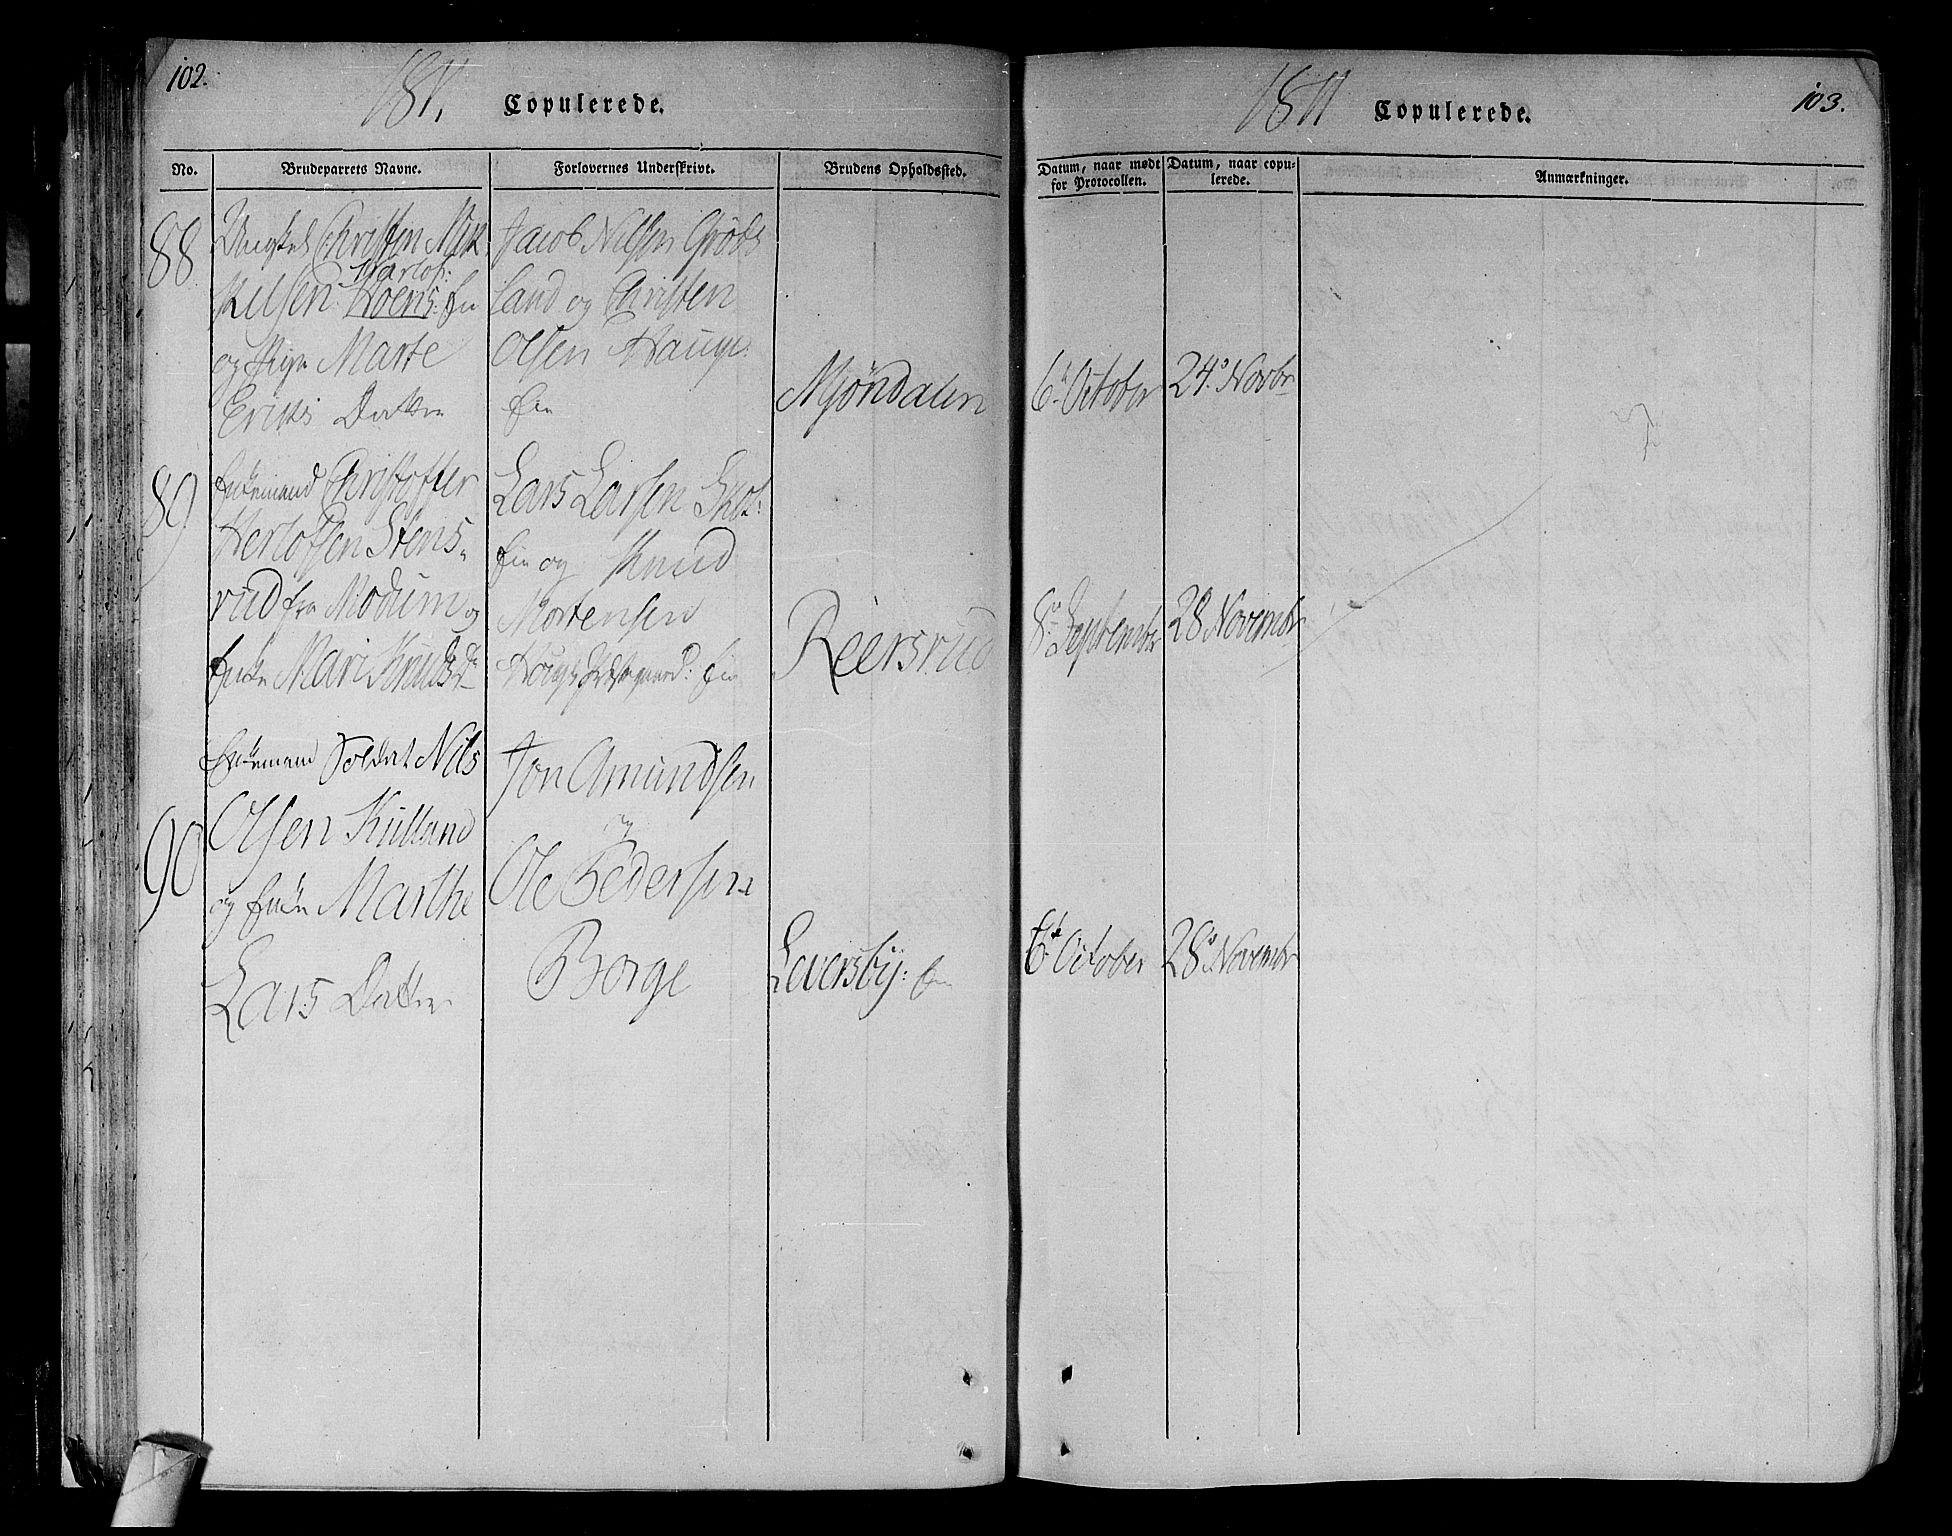 102.
1811.
Copulerede.
No.
Brudeparrets Navne.
Forlovernes Underskrivt.
Brudens Opholdssted.
88
Ungkarl Christen Mik
kelsen Hoens: Eie
og Pige Marte
Eriks Datter
Jacob Nilsen Grøts
land og Christen
Olsen Hauge:
Eie
Mjøndalen
89
Enkemand Christoffer
Herlofsen Stens-
rud fra Modum og
Enke Mari Knuds D
Lars Larsen Skot:
Eie og Knud
Mortensen
Eie
Reersrud
90
Enkemand Soldat Nils
Olsen Killand
og Enke Marthe
Lars Datter
Jon Amundsen
og
Ole Pedersen
Borge
Leversby: Eie
1811
Copulerede.
103.
Datum, naar mødt
for Protocollen.
Datum, naar copu-
lerede.
Anmærkninger.
6te October
24de Novbr
8de September
28 Novembr
6te October
28de Novembr